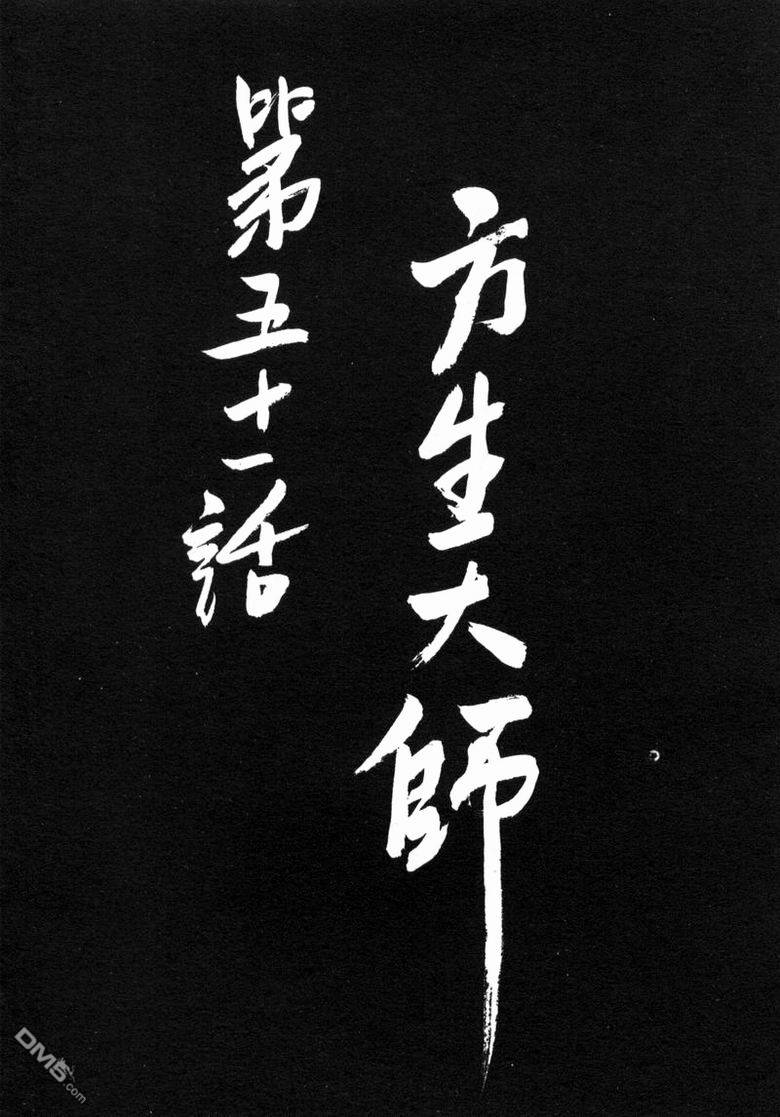 方生大師
第五十一話
DM5.com